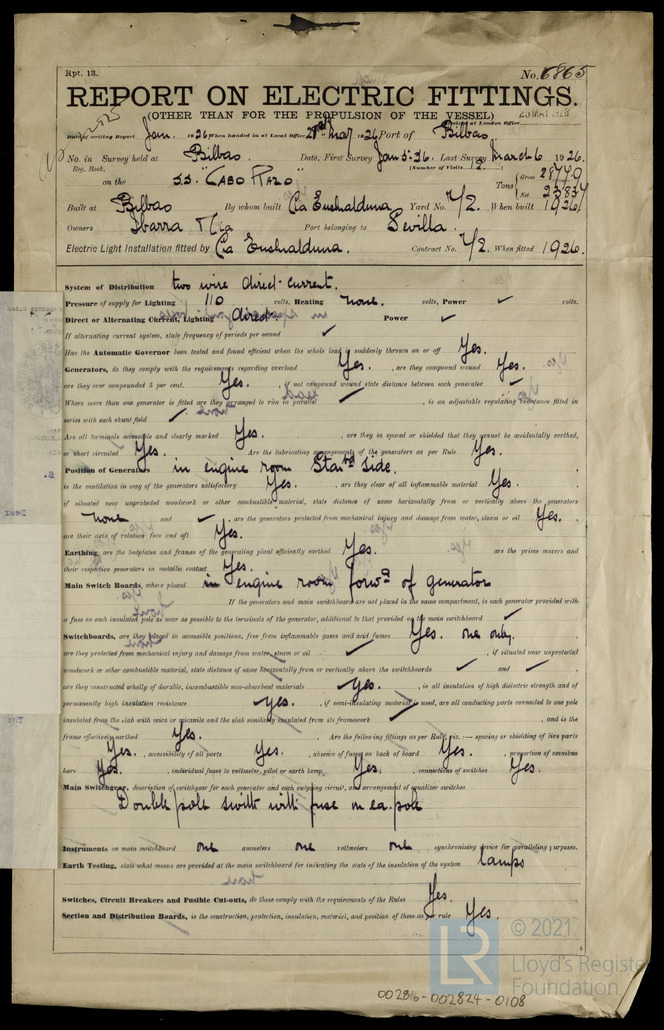 Rpt. 13.
No. 6865
REPORT ON ELECTRIC FITTINGS.
(OTHER THAN FOR THE PROPULSION OF THE VESSEL)
Date of writing Report Jan. 1926 When handed in at Local Office 1926 Port of Bilbao.
No. in Survey held at Bilbao. Date, First Survey Jan 5. 26. Last Survey March 6 1926.
Reg. Book. (Number of Visits 12.)
on the S.S. "CABO RAZO" Tons { Gross Net
Built at Bilbao By whom built Cia Euskalduna Yard No. 72. When built 1926.
Owners Ibarra y Cia Port belonging to Sevilla.
Electric Light Installation fitted by Cia Euskalduna. Contract No. 72. When fitted 1926.
System of Distribution two wire direct-current.
Pressure of supply for Lighting 110 volts, Heating none. volts, Power ✓ volts.
Direct or Alternating Current, Lighting direct Power ✓
If alternating current system, state frequency of periods per second ✓
Has the Automatic Governor been tested and found efficient when the whole load is suddenly thrown on or off Yes.
Generators, do they comply with the requirements regarding overload Yes. , are they compound wound Yes.
are they over compounded 5 per cent. Yes. , if not compound wound state distance between each generator ✓
Where more than one generator is fitted are they arranged to run in parallel ✓ , is an adjustable regulating resistance fitted in
series with each shunt field ✓
Are all terminals accessible and clearly marked Yes. , are they so spaced or shielded that they cannot be accidentally earthed,
or short circuited Yes. Are the lubricating arrangements of the generators as per Rule Yes.
Position of Generators in engine room Starbd side.
is the ventilation in way of the generators satisfactory Yes. , are they clear of all inflammable material Yes.
if situated near unprotected woodwork or other combustible material, state distance of same horizontally from or vertically above the generators
none and ✓ , are the generators protected from mechanical injury and damage from water, steam or oil Yes.
are their axis of rotation fore and aft Yes.
Earthing, are the bedplates and frames of the generating plant efficiently earthed Yes. are the prime movers and
their respective generators in metallic contact Yes.
Main Switch Boards, where placed in engine room forwd of generator
If the generators and main switchboard are not placed in the same compartment, is each generator provided with
a fuse on each insulated pole as near as possible to the terminals of the generator, additional to that provided on the main switchboard ✓
Switchboards, are they placed in accessible positions, free from inflammable gases and acid fumes Yes. one only.
are they protected from mechanical injury and damage from water, steam or oil ✓ , if situated near unprotected
woodwork or other combustible material, state distance of same horizontally from or vertically above the switchboards ✓ and ✓
are they constructed wholly of durable, incombustible non-absorbent materials Yes. , is all insulation of high dielectric strength and of
permanently high insulation resistance Yes. , if semi-insulating material is used, are all conducting parts connected to one pole
insulated from the slab with mica or micanite and the slab similarly insulated from its framework ✓ , and is the
frame effectively earthed Yes. . Are the following fittings as per Rule, viz.:— spacing or shielding of live parts
Yes. , accessibility of all parts Yes. , absence of fuses on back of board Yes. , proportion of omnibus
bars Yes. , individual fuses to voltmeter, pilot or earth lamp Yes. , connections of switches Yes.
Main Switchgear, description of switchgear for each generator and each outgoing circuit, and arrangement of equalizer switches
Double pole switch with fuse in ea. pole
Instruments on main switchboard one ammeters one voltmeters one synchronising device for paralleling purposes.
Earth Testing, state what means are provided at the main switchboard for indicating the state of the insulation of the system lamps
Switches, Circuit Breakers and Fusible Cut-outs, do these comply with the requirements of the Rules Yes.
Section and Distribution Boards, is the construction, protection, insulation, material, and position of these as per rule Yes.
LR
© 2021
Lloyd's Register
Foundation
002816-002824-0108